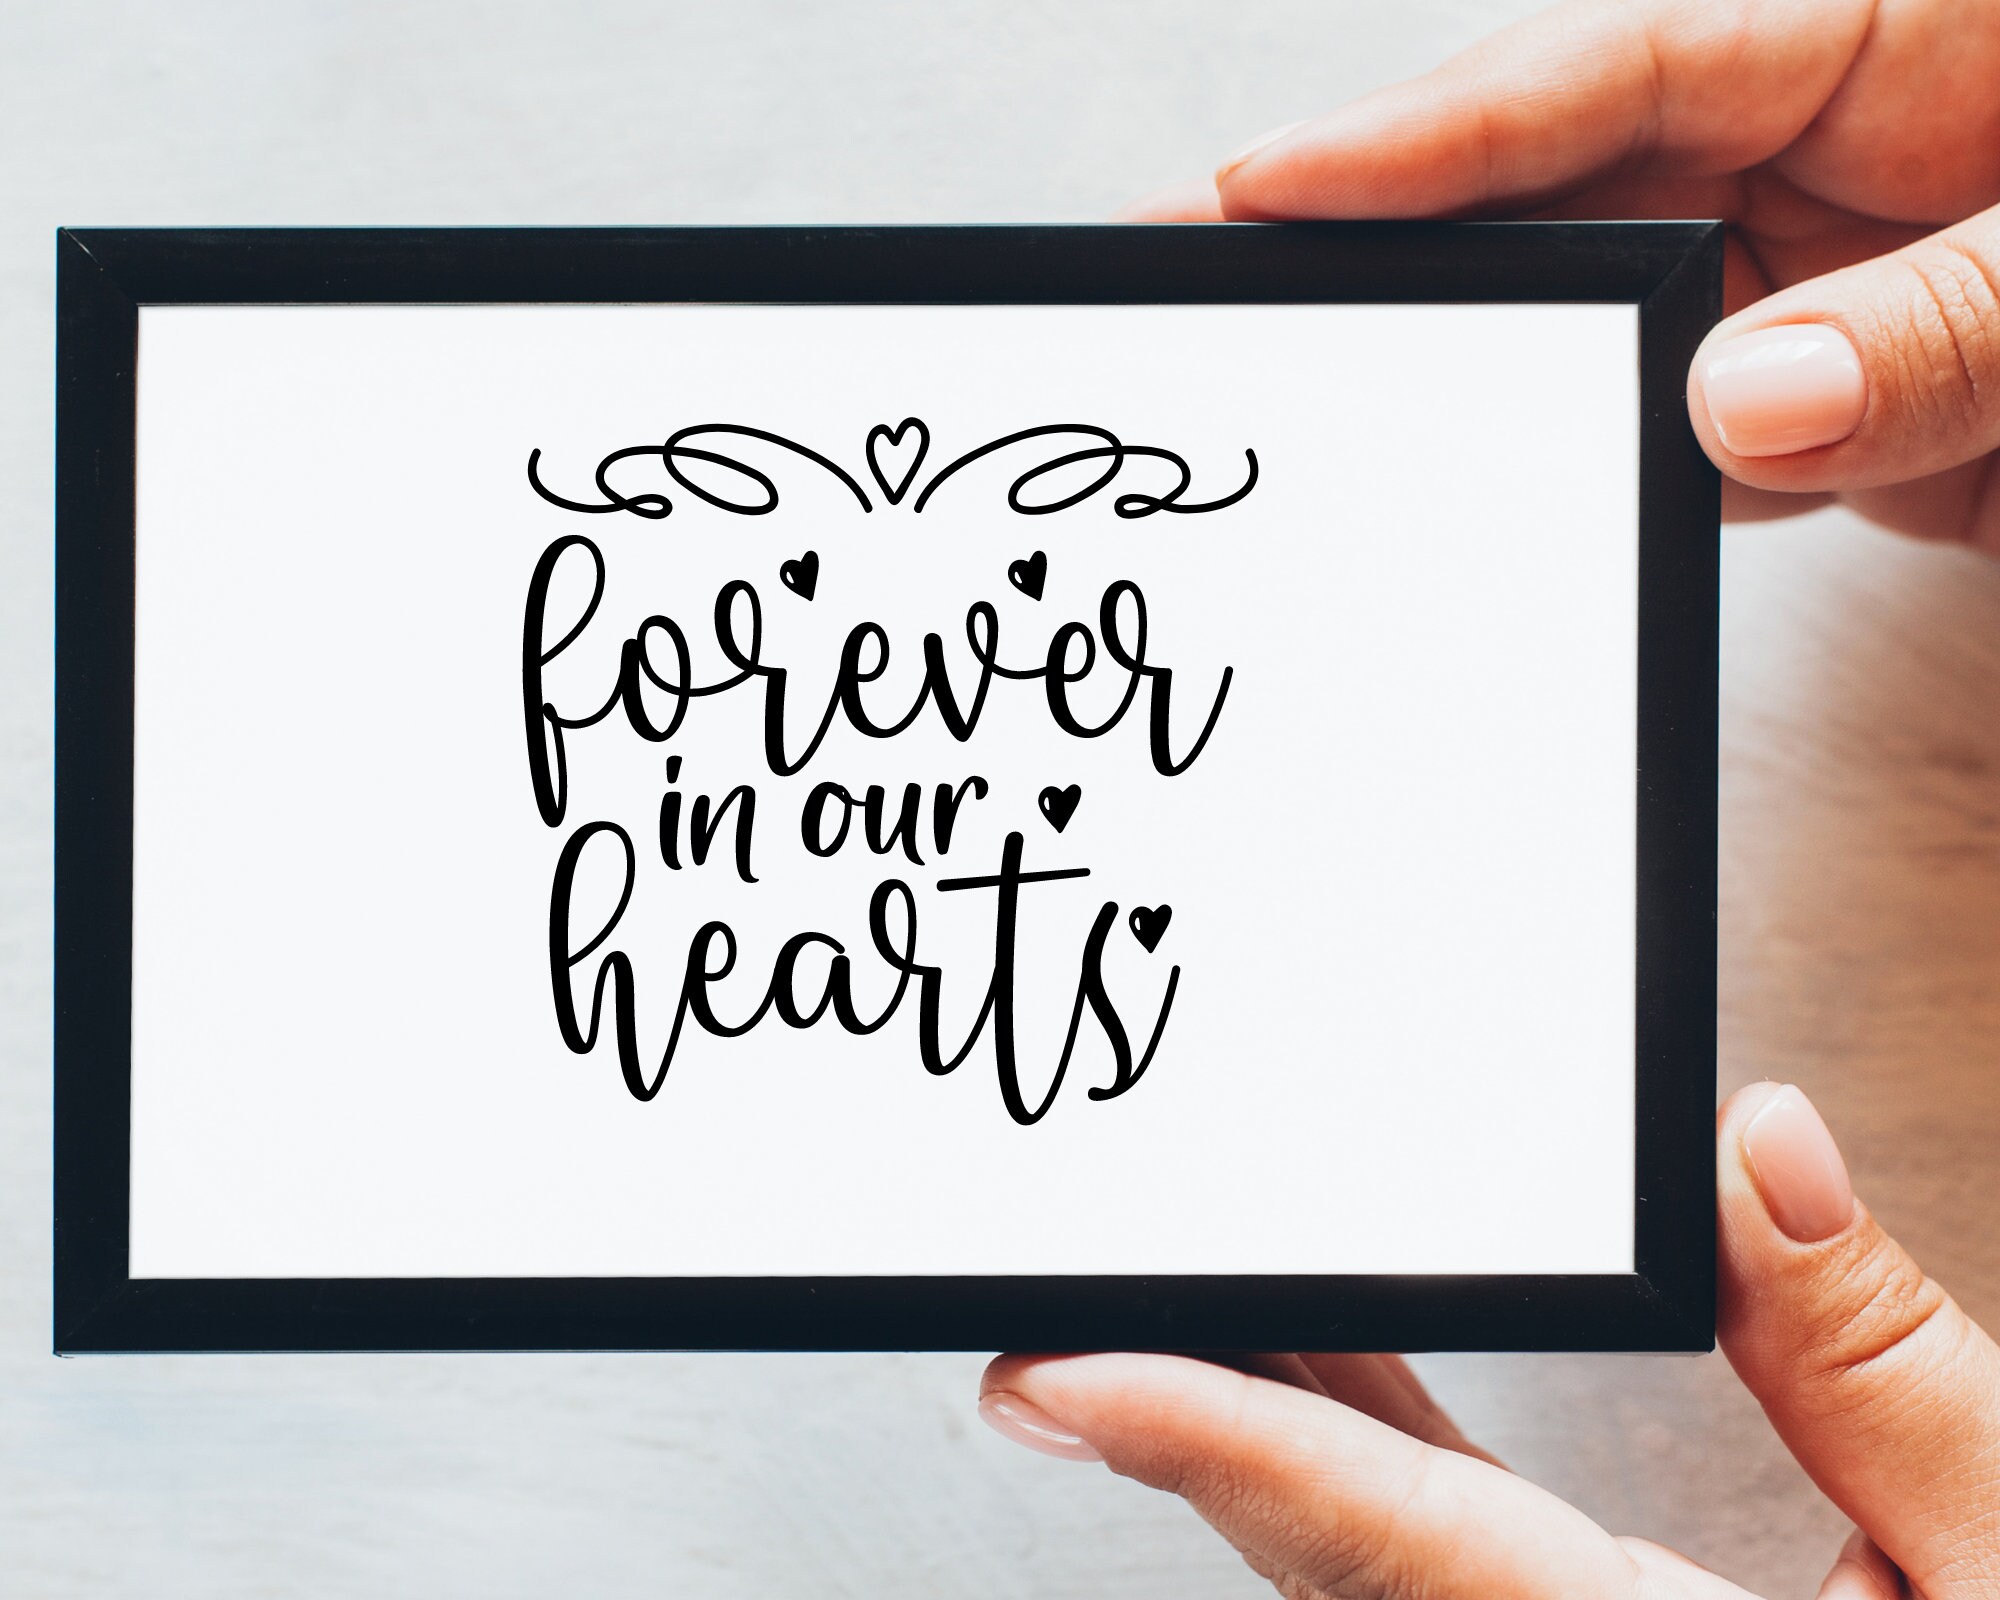 forever
in our
hearts